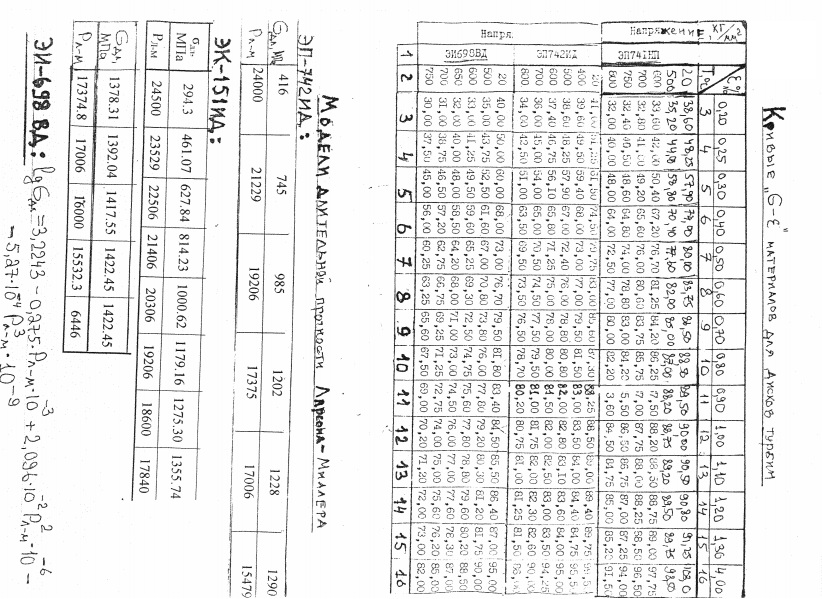 Кривые „σ-ε" материалов для дисков турбин
Напряжение, кГ/мм² ε, % 0,20 0,25 0,30 0,40 0,50 0,60 0,70 0,80 0,90 1,00 1,10 1,20 1,30 4,00
T°C 3 4 5 6 7 8 9 10 11 12 13 14 15 16
ЭП741НП
20 38,60 48,25 57,90 74,00 80,10 83,75 86,50 88,50 89,50 90,00 90,50 90,80 91,75 103,0
500 35,20 44,00 58,80 70,40 77,30 82,00 85,00 87,00 88,20 88,75 89,20 89,50 89,75 98,50
600 33,60 42,00 50,40 67,20 76,70 81,25 84,20 86,25 7,50 88,20 88,30 88,75 89,00 97,75
700 32,80 41,00 49,20 65,60 76,00 80,60 83,75 85,75 7,00 87,75 88,00 88,25 88,50 96,50
750 32,40 40,50 48,60 64,80 74,00 78,80 83,00 84,20 5,50 86,50 86,75 87,00 87,25 94,00
800 32,00 40,00 48,00 64,00 72,50 77,00 80,00 82,20 3,60 84,50 84,75 85,00 85,20 91,50
Напря.
ЭП742ИД
20 41,00 51,25 61,50 74,50 79,75 83,00 85,60 87,30 88,25 88,50 89,40 89,75
400 39,60 49,50 59,40 68,00 73,00 77,00 79,50 81,50 83,00 83,50 84,00 84,40 84,75
500 38,60 48,25 57,90 67,00 72,40 76,00 78,00 80,80 82,00 82,80 83,10 83,60 84,00 95,00
600 37,40 46,75 56,10 65,80 71,25 75,00 78,00 80,00 81,50 82,00 82,50 83,00 83,50 94,25
700 36,00 45,00 54,00 65,00 70,50 74,50 77,50 79,50 81,00 81,75 82,00 82,30 82,60 90,00
800 34,00 42,50 51,00 63,50 69,50 73,50 76,50 78,70 80,20 80,75 81,00 81,25 81,50
ЭИ698ВД
20 40,00 50,00 60,00 68,00 73,00 76,70 79,50 81,80 83,40 84,50 85,50 86,40 87,00 95,00
500 35,00 43,75 52,50 61,60 67,00 70,80 73,80 76,00 77,80 79,20 80,30 81,20 81,75 90,00
600 33,00 41,25 49,50 59,60 65,25 69,30 72,50 74,75 75,60 77,80 78,80 79,60 80,20 88,50
650 32,00 40,00 48,00 58,50 64,20 68,00 71,00 73,00 74,50 76,00 77,00 77,60 78,30 87,00
700 31,00 38,75 46,50 57,20 62,75 66,75 69,25 71,25 72,75 74,00 75,00 75,60 76,20 85,00
750 30,00 37,50 45,00 56,00 60,25 63,25 65,60 67,50 69,00 70,20 71,20 72,00 73,00 82,00
1 2 3 4 5 6 7 8 9 10 11 12 13 14 15 16
Модели длительной прочности Ларсона-Миллера
ЭП-742ИД:
σдл, МПа 416 745 985 1202 1228 1290
Pл-м 24000 21229 19206 17375 17006 15479
ЭК-151ИД:
σдл, МПа 294.3 461.07 627.84 814.23 1000.62 1179.16 1275.30 1355.74
Pл-м 24500 23529 22506 21406 20306 19206 18600 17840
σдл, МПа 1378.31 1392.04 1417.55 1422.45 1422.45
Pл-м 17374.8 17006 16000 15532.3 6446
ЭИ-698ВД: lg σдл = 3,2243 - 0,275·Pл-м·10⁻³ + 2,096·10⁻² P²л-м·10⁻⁶ -
- 5,27·10⁻⁴ P³л-м·10⁻⁹